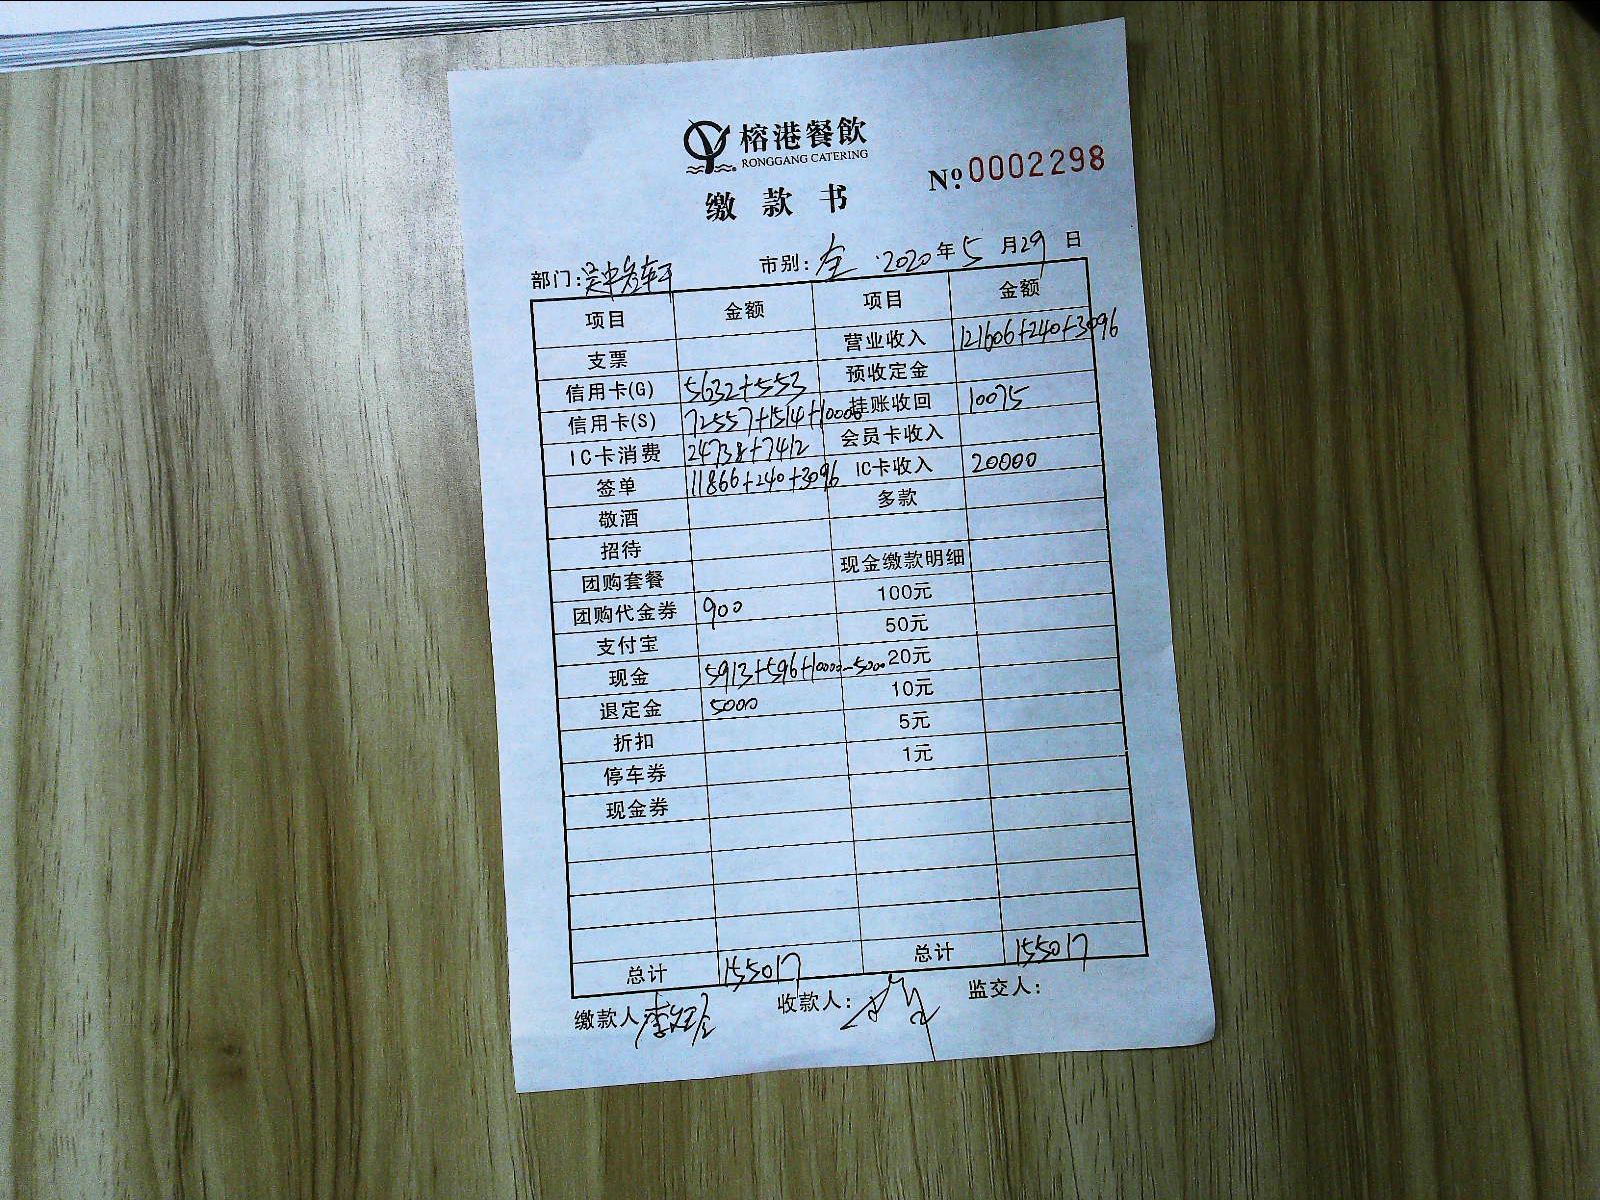 榕港餐飲
RONGGANG CATERING
缴款书 Nº 0002298
部门: 吴中 市别: 全 2020年5月29日
项目 金额 项目 金额
支票 营业收入 121606+240+3096
信用卡(G) 5632+553 预收定金
信用卡(S) 72557+1514+10000 挂账收回 10075
IC卡消费 24738+7412 会员卡收入
签单 11866+240+3096 IC卡收入 20000
敬酒 多款
招待
团购套餐 现金缴款明细
团购代金券 900 100元
支付宝 50元
现金 5913+596+10000-5000 20元
退定金 5000 10元
折扣 5元
停车券 1元
现金券
总计 155017 总计 155017
缴款人 李 收款人: 监交人: